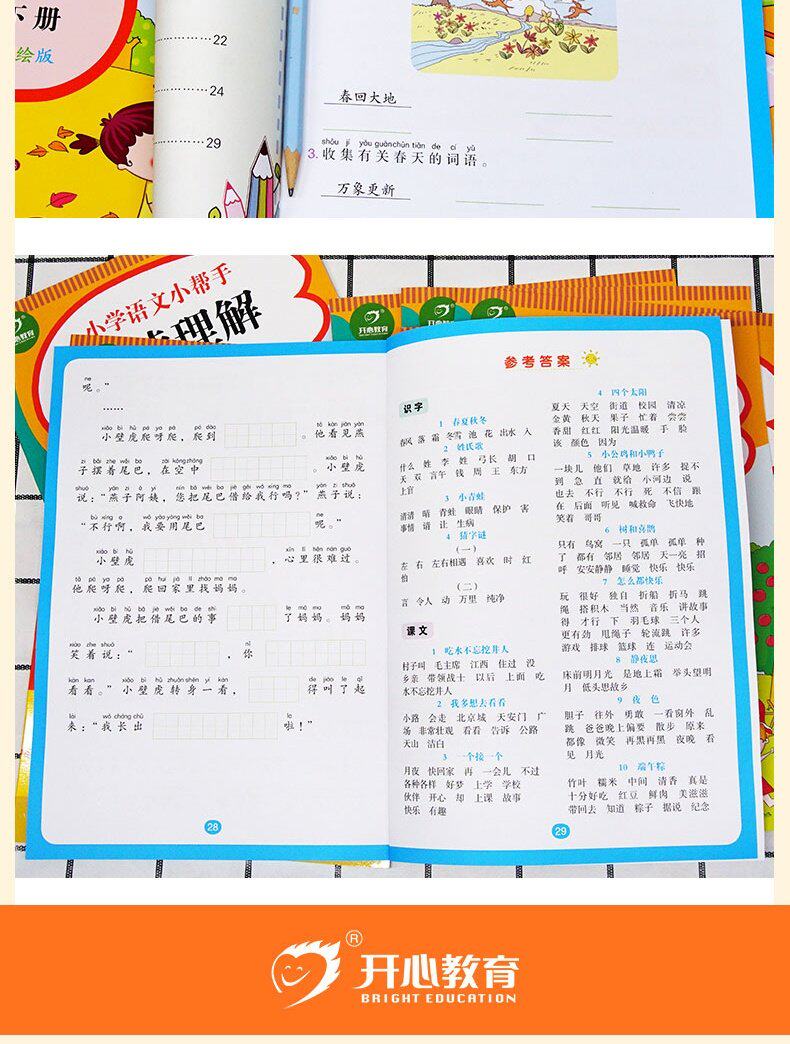 下册
绘版
22
24
29
春回大地
shōu jí yǒu guān chūn tiān de cí yǔ
3. 收集有关春天的词语。
万象更新
小学语文小帮手
理解
开心教育
ne
呢。”
……
xiǎo bì hǔ pá ya pá pá dào tā kàn jiàn yàn
小壁虎爬呀爬，爬到 。他看见燕
zi bǎi zhe wěi ba zài kōng zhōng xiǎo bì hǔ
子摆着尾巴，在空中 。小壁虎
shuō yàn zi ā yí nín bǎ wěi ba jiè gěi wǒ xíng ma yàn zi shuō
说：“燕子阿姨，您把尾巴借给我行吗？”燕子说：
bù xíng a wǒ yào yòng wěi ba ne
“不行啊，我要用尾巴 呢。”
xiǎo bì hǔ xīn lǐ hěn nán guò
小壁虎 ，心里很难过。
tā pá ya pá pá huí jiā lǐ zhǎo mā ma
他爬呀爬，爬回家里找妈妈。
xiǎo bì hǔ bǎ jiè wěi ba de shì le mā ma mā ma
小壁虎把借尾巴的事 了妈妈。妈妈
xiào zhe shuō nǐ
笑着说：“ ，你
kàn kan xiǎo bì hǔ zhuǎn shēn yí kàn de jiào le qǐ
看看。”小壁虎转身一看， 得叫了起
lái wǒ zhǎng chū la
来：“我长出 啦！”
28
参考答案
识字
1 春夏秋冬
春风 落 霜 冬雪 池 花 出水 入
2 姓氏歌
什么 姓 李 姓 弓长 胡 口
天 双 言午 钱 周 王 东方
上官
3 小青蛙
清清 晴 青蛙 眼睛 保护 害
事情 请 让 生病
4 猜字谜
（一）
左 右 左右相遇 喜欢 时 红
怕
（二）
言 令人 动 万里 纯净
课文
1 吃水不忘挖井人
村子叫 毛主席 江西 住过 没
乡亲 带领战士 以后 上面 吃
水不忘挖井人
2 我多想去看看
小路 会走 北京城 天安门 广
场 非常壮观 看看 告诉 公路
天山 洁白
3 一个接一个
月夜 快回家 再 一会儿 不过
各种各样 好梦 上学 学校
伙伴 开心 却 上课 故事
快乐 有趣
4 四个太阳
夏天 天空 街道 校园 清凉
金黄 秋天 果子 忙着 尝尝
香甜 红红 阳光温暖 手 脸
该 颜色 因为
5 小公鸡和小鸭子
一块儿 他们 草地 许多 捉不
到 急 直 就给 小河边 说
也去 不行 不行 死 不信 跟
在 后面 听见 喊救命 飞快地
笑着 哥哥
6 树和喜鹊
只有 鸟窝 一只 孤单 孤单 种
了 都有 邻居 邻居 天一亮 招
呼 安安静静 睡觉 快乐 快乐
7 怎么都快乐
玩 很好 独自 折船 折马 跳
绳 搭积木 当然 音乐 讲故事
得 才行 下 羽毛球 三个人
更有劲 甩绳子 轮流跳 许多
游戏 排球 篮球 连 运动会
8 静夜思
床前明月光 是地上霜 举头望明
月 低头思故乡
9 夜 色
胆子 往外 勇敢 一看窗外 乱
跳 爸爸晚上偏要 散步 原来
都像 微笑 再黑再黑 夜晚 看
见 月光
10 端午粽
竹叶 糯米 中间 清香 真是
十分好吃 红豆 鲜肉 美滋滋
带回去 知道 粽子 据说 纪念
29
开心教育®
BRIGHT EDUCATION